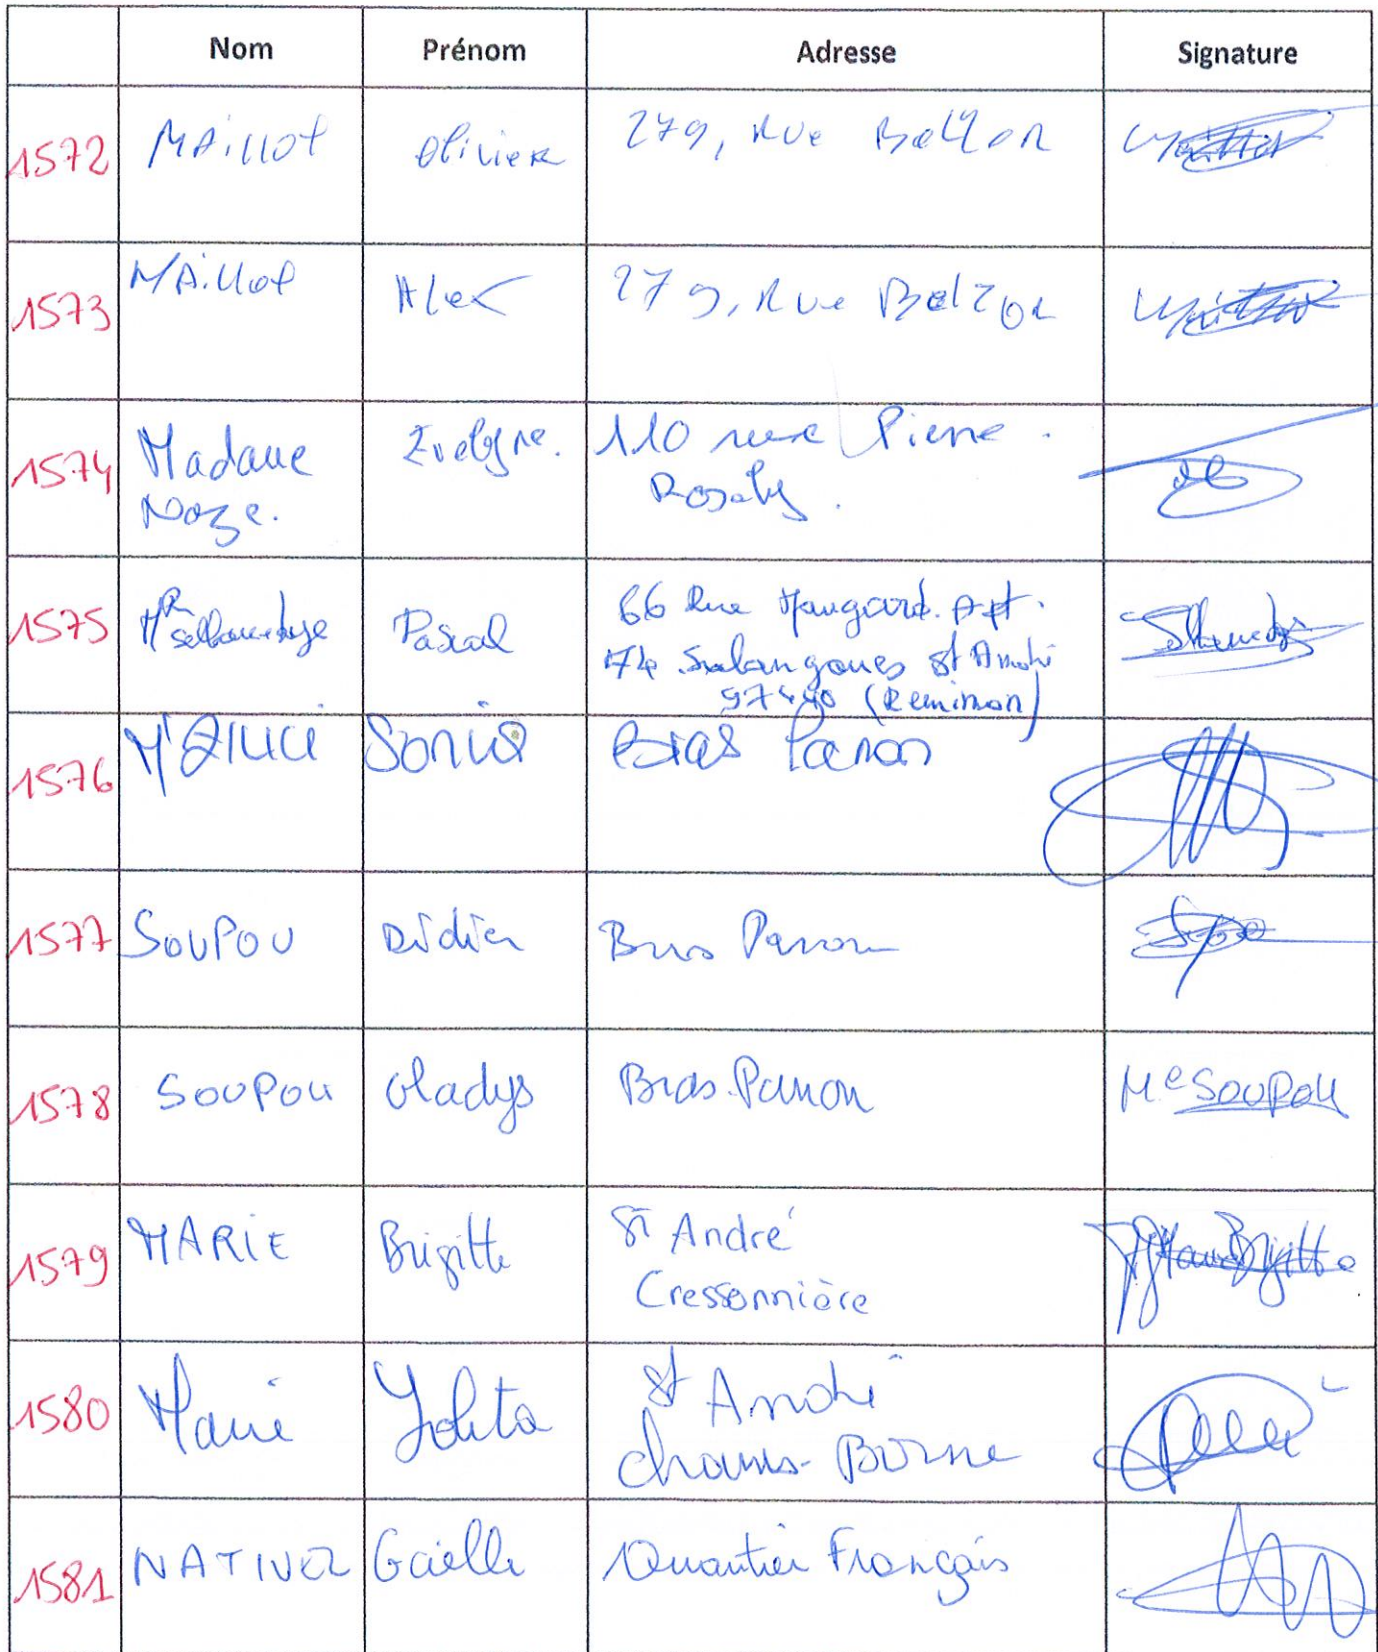 Nom Prénom Adresse Signature
1572 MAillot Olivier 279, Rue
1573 MAillot Alex 279, Rue
1574 Madame Evelyne. 110 rue Pierre.
Noze. Rosely.
1575 Mr Pascal 66 Rue Maugard. Apt.
74 Salanganes St André
97440 (Réunion)
1576 Sonia Bras Panon
1577 SOUPOU Didier Bras Panon
1578 SOUPOU Gladys Bras-Panon Me SOUPOU
1579 MARIE Brigitte St André
Cressonnière
1580 Marie Yolita St André
Champ-Borne
1581 NATIVEL Gaëlle Quartier Français